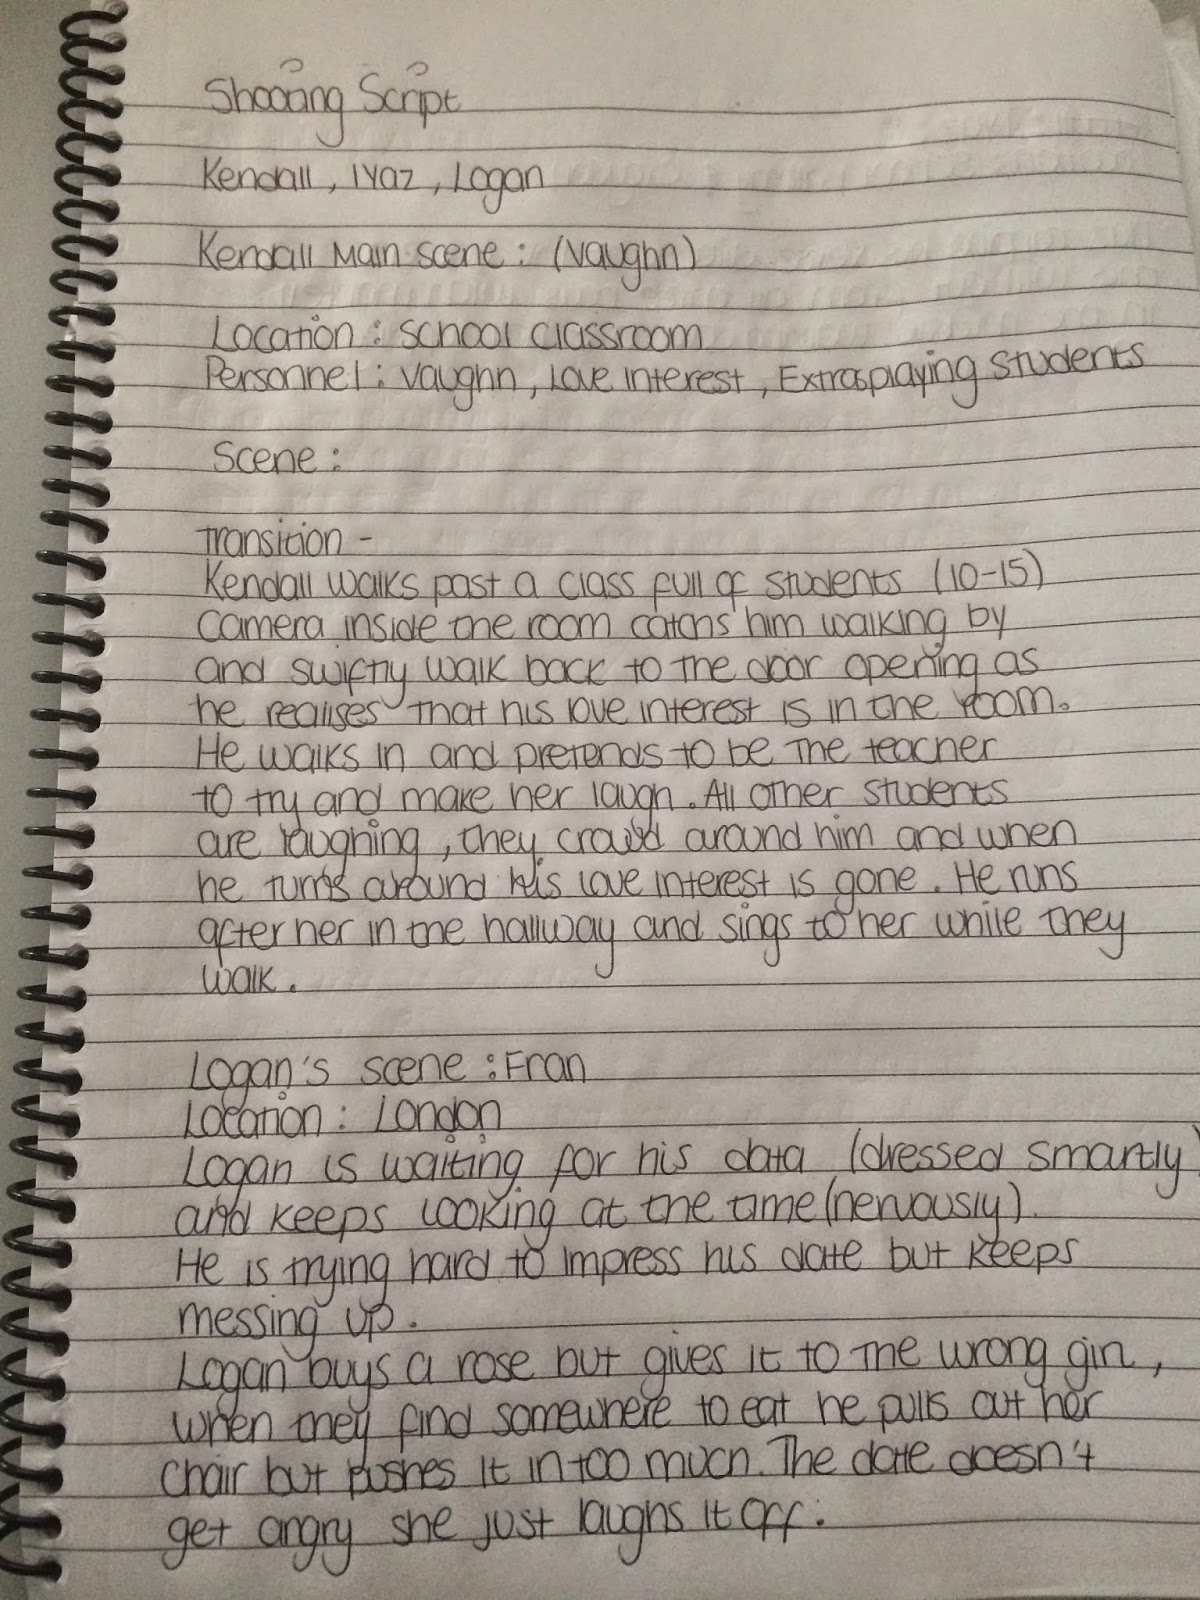 Shooting Script
Kendall, IYaz, Logan
Kendall Main scene: (Vaughn)
Location: school classroom
Personnel: Vaughn, Love interest, Extras playing students
Scene:
Transition -
Kendall walks past a class full of students (10-15)
Camera inside the room catchs him walking by
and swiftly walk back to the door opening as
he realises that his love interest is in the room.
He walks in and pretends to be the teacher
to try and make her laugh. All other students
are laughing, they crowd around him and when
he turns around his love interest is gone. He runs
after her in the hallway and sings to her while they
walk.
Logan's scene: Fran
Location: London
Logan is waiting for his data (dressed smartly)
and keeps looking at the time (nervously).
He is trying hard to impress his date but keeps
messing up.
Logan buys a rose but gives it to the wrong girl,
when they find somewhere to eat he pulls out her
chair but pushes it in too much. The date doesn't
get angry she just laughs it off.